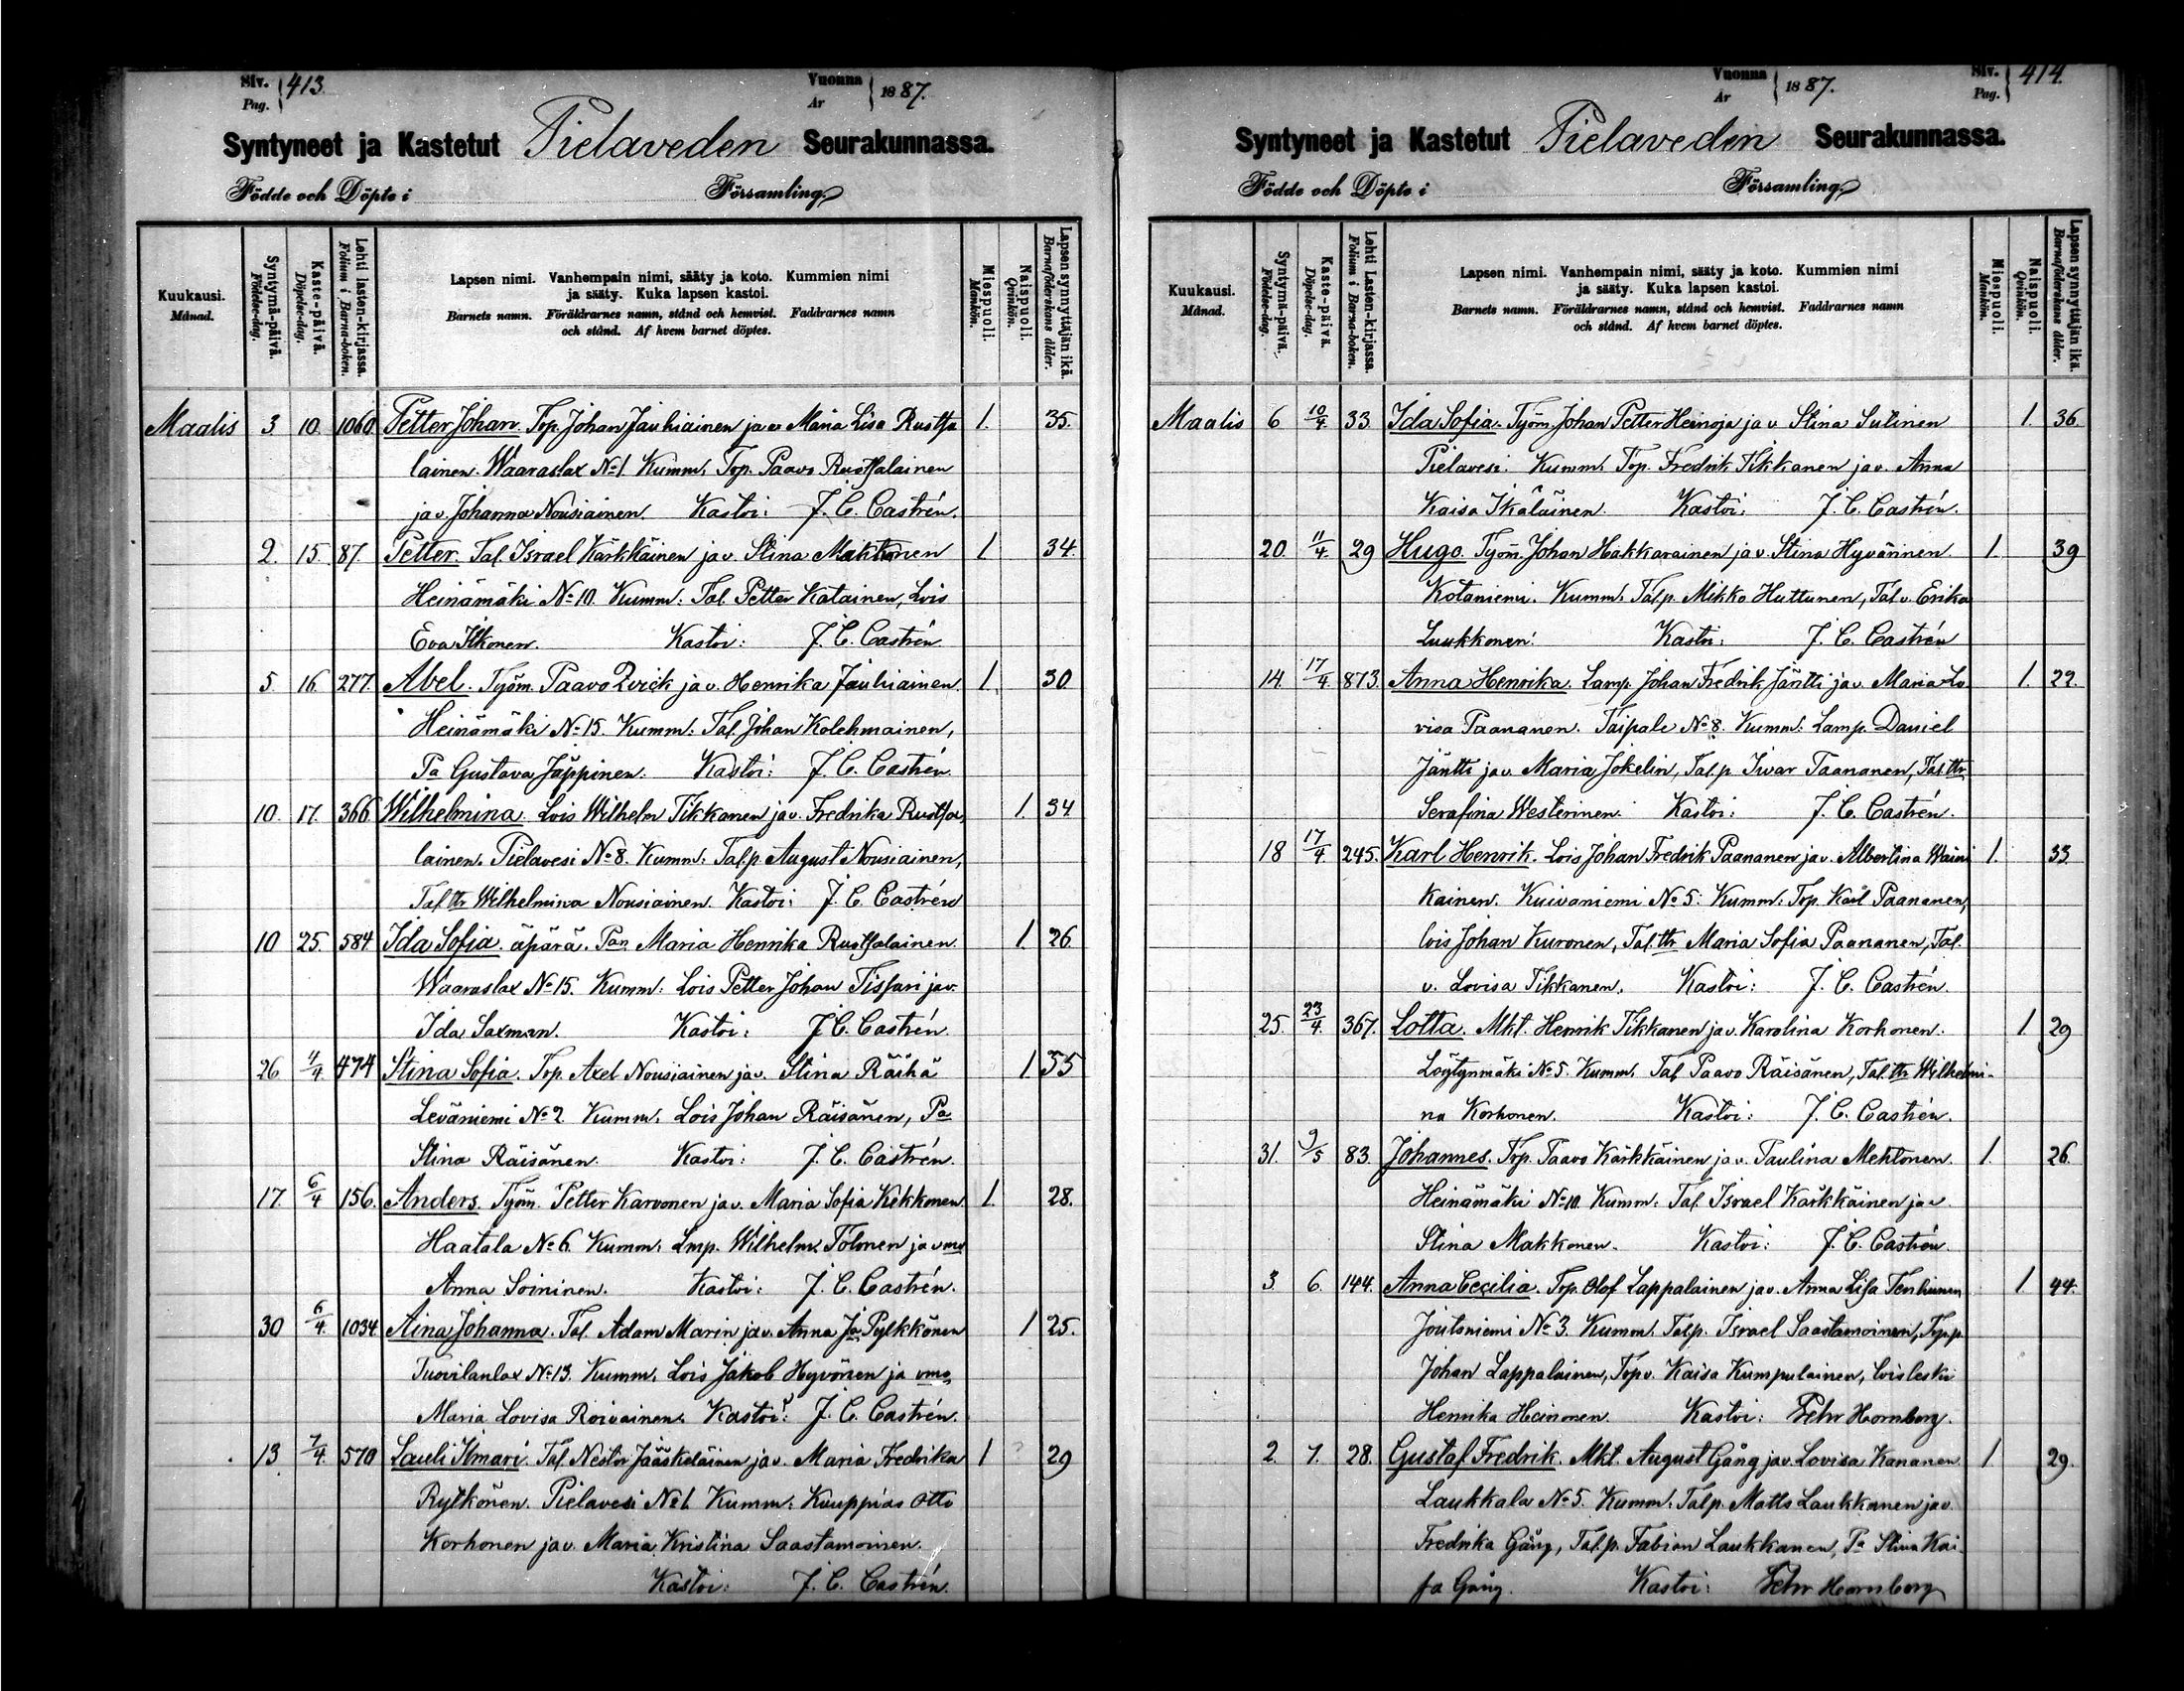 Siv. Pag. 413. Vuonna År 1887.
Syntyneet ja Kastetut Pielaveden Seurakunnassa.
Födde och Döpte i Församling.
Kuukausi. Månad.
Syntymä-päivä. Födelse-dag.
Kaste-päivä. Döpelse-dag.
Lehti lasten-kirjassa. Folium i Barna-boken.
Lapsen nimi. Vanhempain nimi, sääty ja koto. Kummien nimi
ja sääty. Kuka lapsen kastoi.
Barnets namn. Föräldrarnes namn, stånd och hemvist. Faddrarnes namn
och stånd. Af hvem barnet döptes.
Miespuoli. Mankön.
Naispuoli. Qvinkön.
Lapsen synnyttäjän ikä. Barnaföderskans ålder.
Maalis 3. 10. 1060 Petter Johan. Top. Johan Jauhiainen ja v. Maria Lisa Rustfa 1. 35.
lainen. Waaraslax No 1. Kumm. Top. Paavo Rustfalainen
ja v. Johanna Nousiainen. Kastoi: J. C. Castrén.
2. 15. 87. Petter. Tal. Israel Kärkkäinen ja v. Stina Makkonen 1 34.
Heinämäki No 10. Kumm: Tal. Petter Katainen, Lois
Eva Itkonen. Kastoi: J. C. Castrén
5. 16. 277. Abel. Työm. Paavo Zvick ja v. Henrika Jauhiainen. 1. 30.
Heinämäki No 15. Kumm: Tal. Johan Kolehmainen,
Pa Gustava Jäppinen. Kastoi: J. C. Castrén.
10. 17. 366 Wilhelmina. Lois Wilhelm Tikkanen ja v. Fredrika Rustfa, 1. 34
lainen. Pielavesi No 8. Kumm: Tal.p. August Nousiainen,
Tal.ttr Wilhelmina Nousiainen. Kastoi: J. C. Castrén
10 25. 584 Ida Sofia. äpärä. Pan Maria Henrika Rustfalainen. 1. 26.
Waaraslax No 15. Kumm: Lois Petter Johan Tissari ja v.
Ida Saxman. Kastoi: J. C. Castrén.
26 4/4. 474 Stina Sofia. Top. Axel Nousiainen ja v. Stina Räihä 1. 35
Leväniemi No 2. Kumm. Lois Johan Räisänen, Pa
Stina Räisänen. Kastoi: J. C. Castrén.
17. 6/4 156. Anders. Työm. Petter Karvonen ja v. Maria Sofia Kekkonen. 1. 28.
Haatala No 6. Kumm. Lmp. Wilhelm Tolonen ja vmo
Anna Soininen. Kastoi: J. C. Castrén.
30 6/4. 1034 Aina Johanna. Tal. Adam Marin ja v. Anna Ja Pylkkönen 1 25.
Tuovilanlax No 13. Kumm. Lois Jakob Hyvönen ja vmo,
Maria Lovisa Roivainen. Kastoi: J. C. Castrén.
13 7/4. 570 Lauli Ilmari. Tal. Nestor Jääskeläinen ja v. Maria Fredrika 1 29
Rytkönen. Pielavesi No 1. Kumm: Kauppias Otto
Korhonen ja v. Maria Kristina Saastamoinen.
Kastoi: J. C. Castrén.
Vuonna År 1887. Siv. Pag. 414.
Syntyneet ja Kastetut Pielaveden Seurakunnassa.
Födde och Döpte i Församling.
Kuukausi. Månad.
Syntymä-päivä. Födelse-dag.
Kaste-päivä. Döpelse-dag.
Lehti Lasten-kirjassa. Folium i Barna-boken.
Lapsen nimi. Vanhempain nimi, sääty ja koto. Kummien nimi
ja sääty. Kuka lapsen kastoi.
Barnets namn. Föräldrarnes namn, stånd och hemvist. Faddrarnes namn
och stånd. Af hvem barnet döptes.
Miespuoli. Mankön.
Naispuoli. Qvinkön.
Lapsen synnyttäjän ikä. Barnaföderskans ålder.
Maalis 6 10/4 33. Ida Sofia. Työm. Johan Petter Heinoja ja v. Stina Sutinen 1. 36.
Pielavesi. Kumm. Top. Fredrik Tikkanen ja v. Anna
Kaisa Ikäläinen. Kastoi: J. C. Castrén.
20. 11/4 29 Hugo. Työm. Johan Hakkarainen ja v. Stina Hyvärinen. 1. 39
Kotaniemi. Kumm. Tal.p. Mikko Huttunen, Tal.v. Erika
Luukkonen. Kastoi: J. C. Castrén
14. 17/4 873. Anna Henrika. Lamp. Johan Fredrik Jäntti ja v. Maria Lo 1. 22.
visa Paananen. Taipale No 8. Kumm: Lamp. Daniel
Jäntti ja v. Maria Jokelin, Tal.p. Iwar Paananen, Tal.ttr
Serafina Westerinen. Kastoi: J. C. Castrén.
18 17/4 245. Karl Henrik. Lois Johan Fredrik Paananen ja v. Albertina Waini 1. 33
kainen. Kuivaniemi No 5. Kumm: Top. Karl Paananen,
lois Johan Kuronen, Tal.ttr Maria Sofia Paananen, Tal.
v. Lovisa Tikkanen. Kastoi: J. C. Castrén.
25. 23/4. 367. Lotta. Mkt. Henrik Tikkanen ja v. Karolina Korhonen. 1. 29
Löytynmäki No 5. Kumm. Tal. Paavo Räisänen, Tal.ttr Wilhelmi-
na Korhonen. Kastoi: J. C. Castrén.
31. 9/5 83. Johannes. Top. Paavo Kärkkäinen ja v. Paulina Mehtonen. 1. 26.
Heinämäki No 10. Kumm: Tal. Israel Kärkkäinen ja v.
Stina Makkonen. Kastoi: J. C. Castrén.
3 6. 144. Anna Cecilia. Top. Olof Lappalainen ja v. Anna Lisa Tenhunen 1. 44.
Joutsniemi No 3. Kumm. Tal.p. Israel Saastamoinen, Top.p
Johan Lappalainen, Top.v. Kaisa Kumpulainen, lois leski
Henrika Heinonen. Kastoi: Fehr Hornborg.
2. 7. 28. Gustaf Fredrik. Mkt. August Gång ja v. Lovisa Kananen 1. 29.
Laukkala No 5. Kumm. Tal.p. Matts Laukkanen ja v.
Fredrika Gång, Tal.p. Fabian Laukkanen, Pa Stina Kai-
sa Gång. Kastoi: Fehr Hornborg